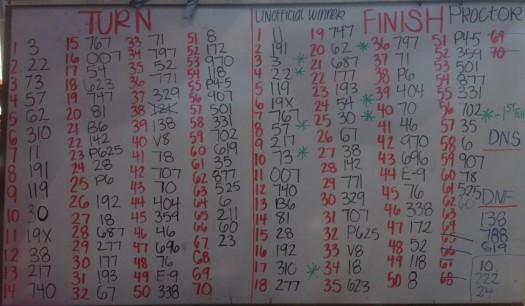 TURN
1 3
2 22
3 73
4 57
5 62
6 310
7 11
8 191
9 119
10 30
11 19X
12 38
13 217
14 740
15 767
16 007
17 54
18 623
19 747
20 81
21 B6
22 142
23 P625
24 28
25 P6
26 192
27 18
28 687
29 277
30 177
31 193
32 67
33 71
34 797
35 52
36 771
37 329
38
39 138
40 V8
41 78
42 707
43 70
44 404
45 359
46 46
47 696
48 76
49 E-9
50 338
51 8
52 172
53 970
54 118
55 P45
56 907
57 501
58 331
59 702
60 619
61 35
62 877
63 525
64 6
65 211
66 60
67 23
68
69
70
UNOFFICIAL WINNER FINISH Proctor
1 11
2 191
3 3 *
4 22 *
5 119
6 19X
7 767
8 57 *
9 217
10 73 *
11 007
12 740
13 B6
14 81
15 28
16 192
17 310 *
18 277
19 747
20 62 *
21 687
22 177
23 193
24 54 *
25 30 *
26 67
27 38
28 142
29 771
30 329
31 707
32 P625
33 V8
34 18
35 623
36 797
37 71
38 P6
39 404
40 70
41 46
42 970
43 696
44 E-9
45 76
46 338
47 172
48 52
49 118
50 8
51 P45
52 359
53 501
54 877
55 331
56 702 *
57 35
58 6
59 907
60 78
61 525
62
63
64
65
66
67
68
69
70
DNS
DNF
138
788
619
10
222
24